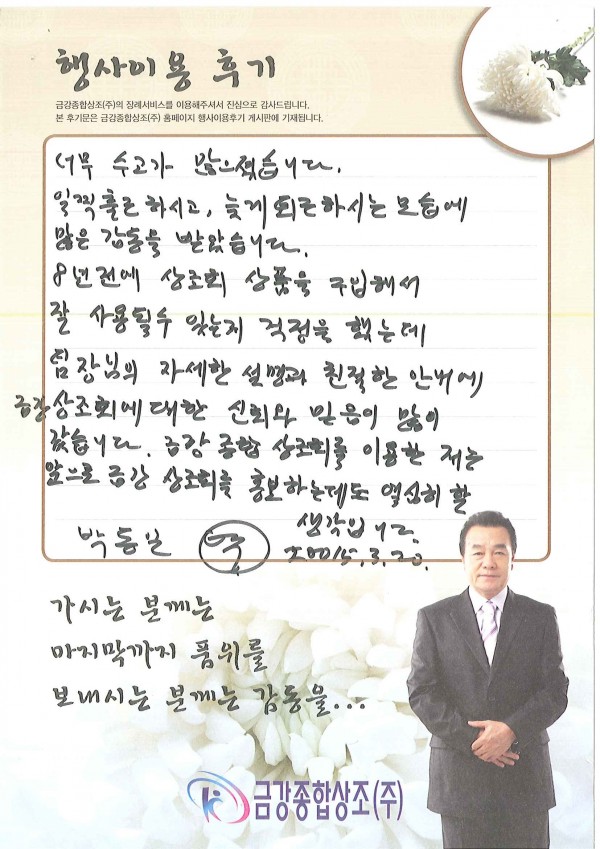 행사이용 후기
금강종합상조(주)의 장례서비스를 이용해주셔서 진심으로 감사드립니다.
본 후기문은 금강종합상조(주) 홈페이지 행사이용후기 게시판에 기재됩니다.
너무 수고가 많으셨습니다.
일찍 출근하시고, 늦게 퇴근하시는 모습에
많은 감동을 받았습니다.
8년전에 상조회 상품을 구입해서
잘 사용될수 있는지 걱정을 했는데
팀장님의 자세한 설명과 친절한 안내에
금강 상조회에 대한 신뢰와 믿음이 많이
갔습니다. 금강 종합 상조회를 이용한 저는
앞으로 금강 상조회를 홍보하는데도 열심히 할
생각입니다.
박동일
2015.3.20.
가시는 분께는
마지막까지 품위를
보내시는 분께는 감동을...
금강종합상조(주)